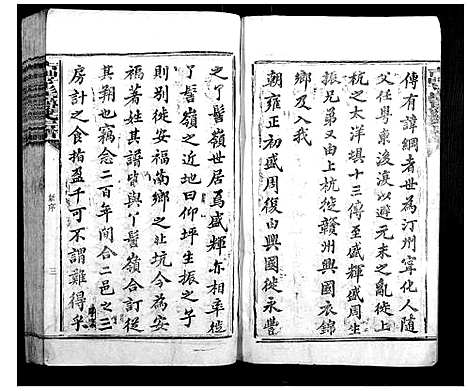 傳有諱綱者世為汀州寧化人隨
父任粵東後渡以避元末之亂徙上
杭之太洋埧十三傳至盛輝盛周生
振兄弟又由上杭徙贛州興國衣錦
鄉及入我
朝雍正初盛周復由興國徙永豐
之丫髻嶺世居焉盛輝亦相率徙
丫髻嶺之近地曰仰坪生振之子
則別徙安福南鄉之北坑今為安
福著姓其譜皆與丫髻嶺合訂從
其朔也竊念二百年間合二邑之三
房計之食指盈千可不謂難得乎
新序
三